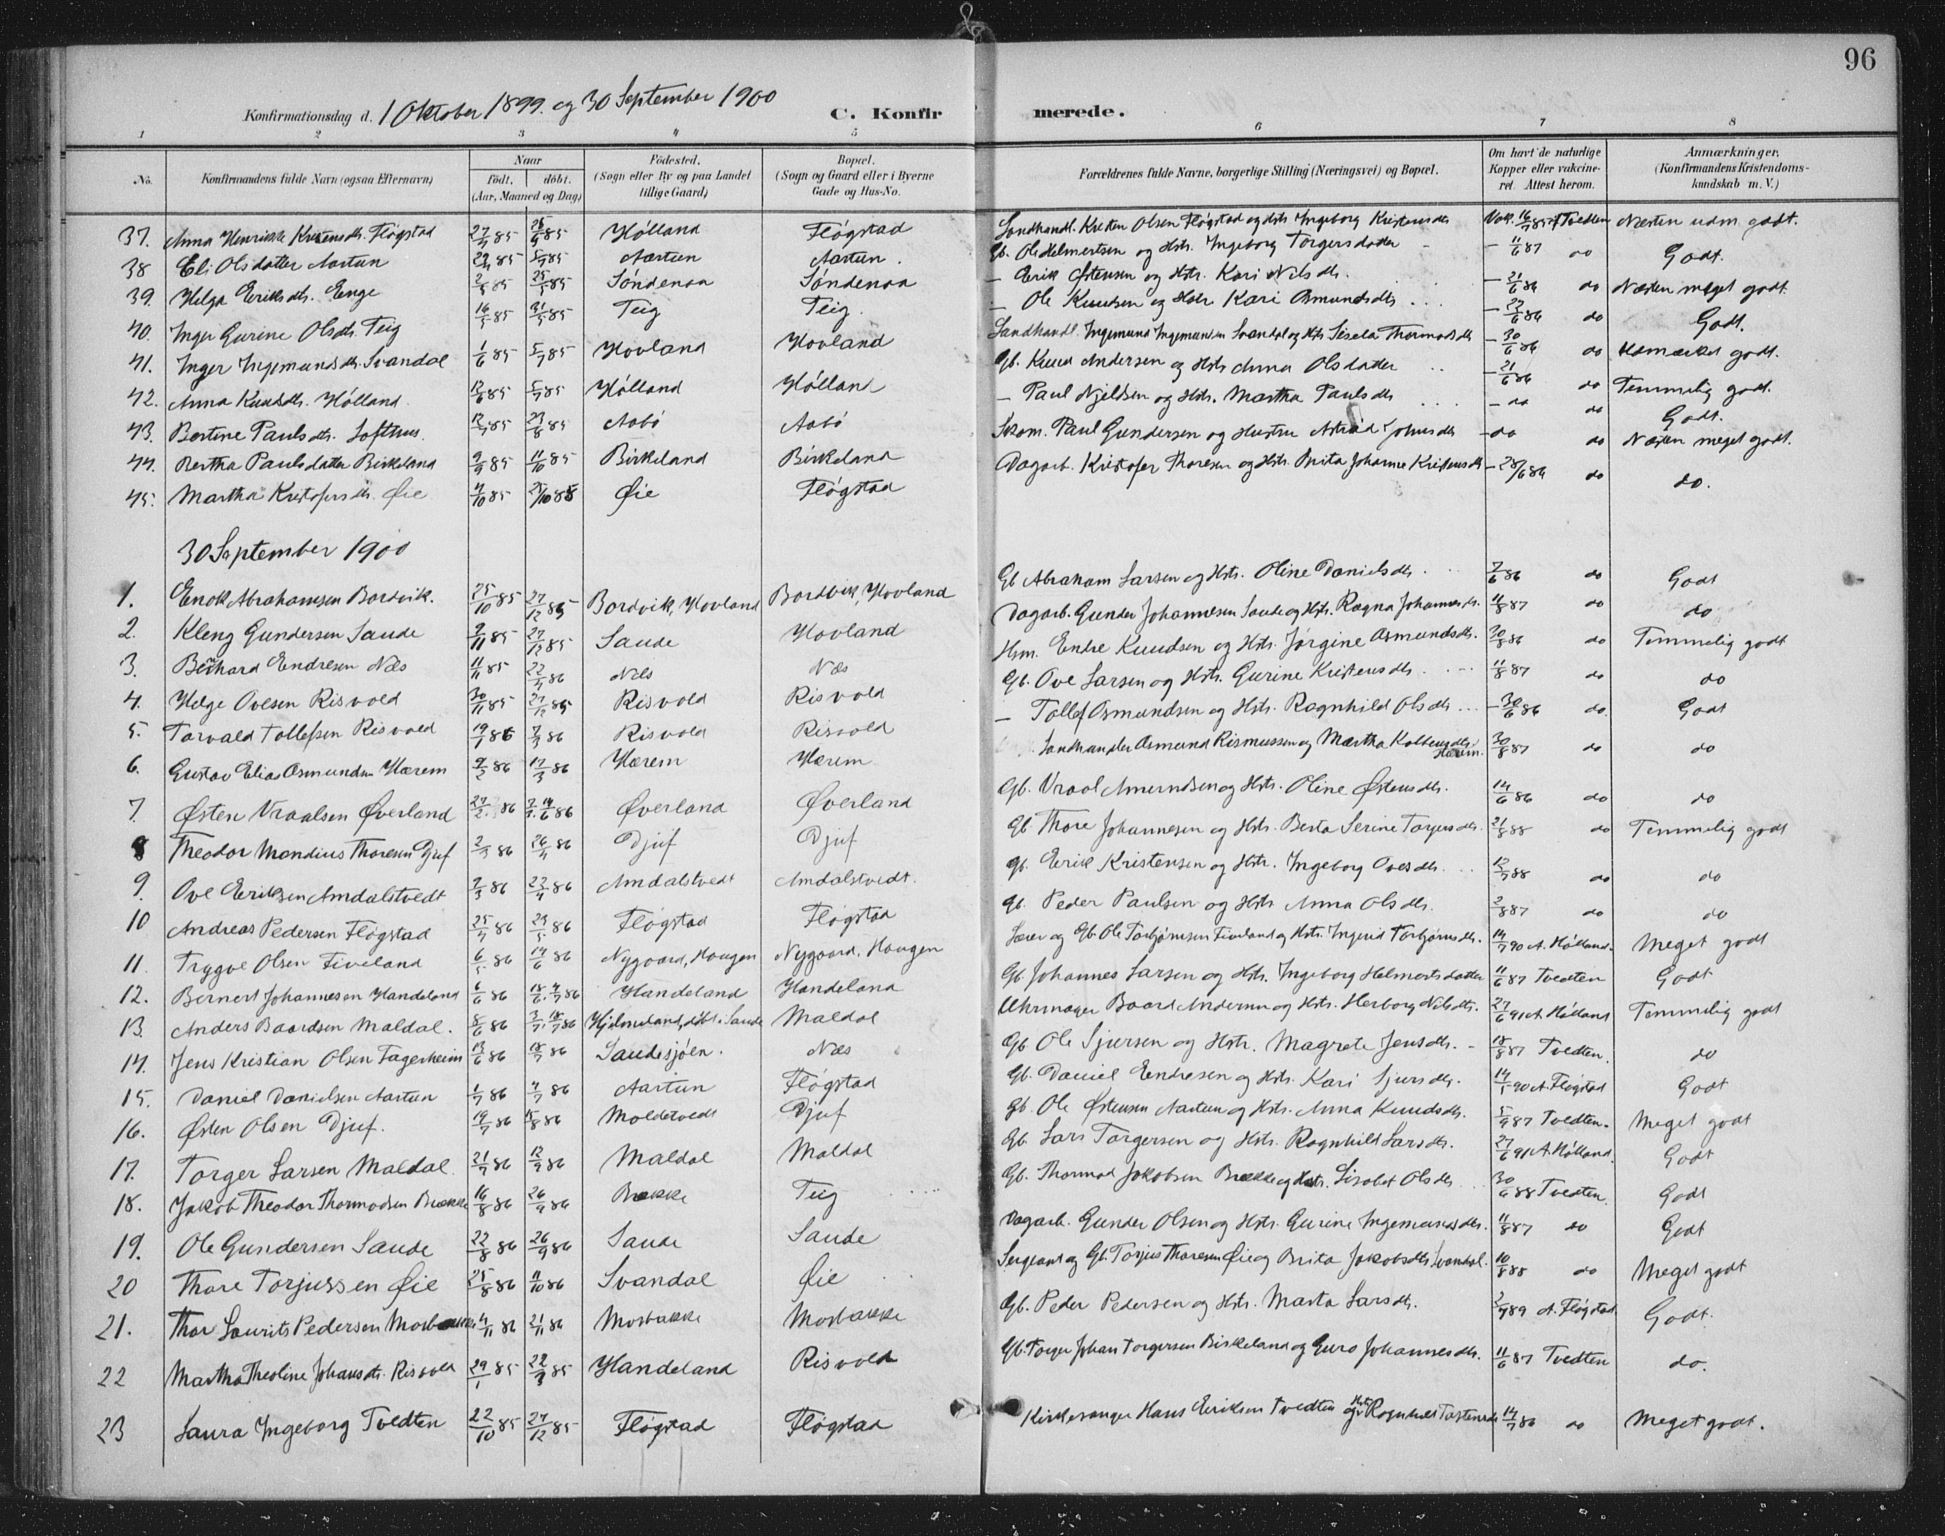 96
Konfirmationsdag d. 1 Oktober 1899. og 30 September 1900 C. Konfirmerede.
1 2 3 4 5 6 7 8
No. Konfirmandens fulde Navn (ogsaa Efternavn) Naar född, (Aar, Maaned og Dag) döbt. Födested. (Sogn eller By og paa Landet tillige Gaard) Bopæl. (Sogn og Gaard eller i Byerne Gade og Hus-No. Forældrenes fulde Navne, borgerlige Stilling (Næringsvei) og Bopæl. Om havt de naturlige Kopper eller vakcineret. Attest herom. Anmærkninger. (Konfirmandens Kristendomskundskab m. V.)
37. Anna Henrikke Kristensdtr. Fløgstad Hølland Fløgstad Landhandl. Kristen Olsen Fløgstad og Hstr Ingeborg Kristensdtr Tvedten Næsten udm. godt.
38 Eli Olsdatter Aartun Aartun Aartun. Gb. Ole Helmertsen og Hstr. Ingeborg Torgersdatter - 11/6 87 do Godt.
39. Helga Eriksdtr. Enge Søndenaa Søndenaa — Erik Østensen og Hstr. Kari Nilsdtr. - 21/6 86 do Næsten meget godt.
40. Inger Gurine Olsdtr. Teig 16/5 85 31/5 85 Teig Teig. — Ole Knudsen og Hstr Kari Osmundsdtr do Godt.
41. Inger Ingemundsdtr. Svandal 1/6 85 5/7 85 Hovland Hovland Landhandl. Ingemund Ingemundsen Svandal og Hstr Sisela Thormodsdtr - 30/6 86 do Udmærket godt.
42. Anna Knudsdtr. Hølland 12/6 85 5/7 85 Hølland Hølland Gb. Knud Andersen og Hstr Anna Olsdatter - 21/6 86 do Temmelig godt.
43. Bertine Paulsdtr. Lofthus. 12/7 85 23/8 85 Aabø Aabø — Paul Njeldsen og Hstr. Martha Paulsdtr - do do Godt.
44. Bertha Paulsdatter Birkeland 9/9 85 11/10 85 Birkeland Birkeland Skom. Paul Gundersen og Hustru Astrid Johnsdtr - do do Næsten meget godt.
45. Martha Kristofersdtr. Øie 4/10 85 Øie Fløgstad Dagarb. Kristofer Thoresen og Hstr. Brita Johanne Kristensdtr - 28/6 86 do do.
30 September 1900
1. Enok Abrahamsen Bordvik. 25/10 85 27/12 85 Bordvik, Hovland Bordvik, Hovland Gb Abraham Larsen og Hstr. Oline Danielsdtr. 7/6 86 do Godt
2. Kleng Gundersen Saude 9/11 85 27/12 85 Saude Hovland Dagarb. Gunder Johannesen Saude og Hstr. Ragna Johannesdtr. 11/8 87 do do
3. Bernhard Endresen Næs 11/11 85 22/4 86 Næs Næs Hsm. Endre Knudsen og Hstr. Jørgine Osmundsdtr. 30/8 86 do Temmelig godt
4. Helge Ovesen Risvold 30/11 85 27/12 85 Risvold Risvold Gb. Ove Larsen og Hstr. Gurine Kristensdtr. 11/8 87 do do
5. Torvald Tollefsen Risvold 19/1 86 7/3 86 Risvold Risvold — Tollef Osmundsen og Hstr. Ragnhild Olsdtr. - 30/6 86 do. Godt
6. Gustav Elias Osmundsen Hærem 17/3 86 Hærem Hærem Landhandler Osmund Rasmussen og Martha Kolbensdtr. Hærem. 30/8 87 do do
7. Østen Vraalsen Øverland 27/2. 86 Øverland Øverland Gb. Vraal Amundsen og Hstr. Oline Østensdtr. 14/6 86 do do
8 Theodor Mondius Thoresen Djuf 2/3 86 26/4 86 Djuf Djuf Gb Thore Johannesen og Hstr. Berta Serine Torjersdtr. 21/8 88 do Temmelig godt
9. Ove Eriksen Amdalstvedt 7/3 86 22/4 86 Amdalstvedt Amdalstvedt. Gb. Erik Kristensen og Hstr. Ingeborg Ovesdtr. 12/7 88 do do
10 Andreas Pedersen Fløgstad 25/4 86 23/5 86 Fløgstad Fløgstad Gb. Peder Paulsen og Hstr Anna Olsdtr. 2/8 87 do do
11. Trygve Olsen Fiveland 6/5 86 14/6 86 Nygaard, Haugen Nygaard, Haugen Lærer og Gb. Ole Torbjørnsen Fiveland og Hstr. Ingerid Torbjørnsdtr. 14/7 90 A. Hølland. Meget godt
12. Bernert Johannesen Handeland 6/6 86 Handeland Handeland Gb Johannes Larsen og Hstr. Ingeborg Helmertsdatter 11/6 87 Tvedten Godt
13. Anders Baardsen Maldal. 8/6 86 Hjelmeland, døbt i Saude Maldal Uhrmager Baard Andersen og Hstr. Herborg Nilsdtr. 27/6 91 A. Hølland Temmelig godt
14. Jens Kristian Olsen Fagerheim 13/6 86 18/7 86 Saudesjøen. Næs Gb Ole Sjursen og Hstr. Magrete Jensdtr. - 18/8 87 Tvedten. do
15. Daniel Danielsen Aartun 1/7 86 4/7 86 Aartun Fløgstad Gb. Daniel Endresen og Hstr. Kari Sjursdtr. 14/5 90 A. Fløgstad Godt
16. Østen Olsen Djuf. 19/7 86 15/8 86 Moldetvedt Djuf Gb. Ole Østensen Aartun og Hstr. Anna Knudsdtr. 5/9 87 Tvedten. Meget godt
17. Torger Larsen Maldal. 21/7 86 12/9 86 Maldal Maldal Gb Lars Torgersen og Hstr. Ragnhild Larsdtr. 27/6 91 A. Hølland. Godt
18. Jakob Theodor Thormodsen Brække 16/8 86 26/9 86 Brække Teig Gb. Thormod Jakobsen Brække og Hstr. Lisabet Olsdtr 30/6 88 Tvedten. Godt
19. Ole Gundersen Saude 22/8 86 26/9 86 Saude Saude Dagarb. Gunder Olsen og Hstr. Gurine Ingemundsdtr. 11/8 87 do Godt
20 Thore Torjussen Øie 25/8 86 11/10 86 Svandal Øie Sergeant og Gb. Torjus Thoresen Øie og Brita Jakobsdtr. Svandal. 10/8 88 do Meget godt
21. Thor Laurits Pedersen Mosbække 4/11 86 21/11 86 Mosbække Mosbække Gb. Peder Pedersen og Hstr. Marta Larsdtr. 2/7 89 A. Fløgstad Godt.
22 Martha Theoline Johansdtr. Risvold 29/1 85 22/3 85 Handeland Risvold Gb. Torger Johan Torgersen Birkeland og Guro Johannesdtr. 11/6 87 Tvedten do.
23 Laura Ingeborg Tvedten 22/10 85 27/12 85 Fløgstad Fløgstad Kirkesanger Hans Eriksen Tvedten og Hstr Ragnhild Tostensdtr 14/7 86 do Meget godt.